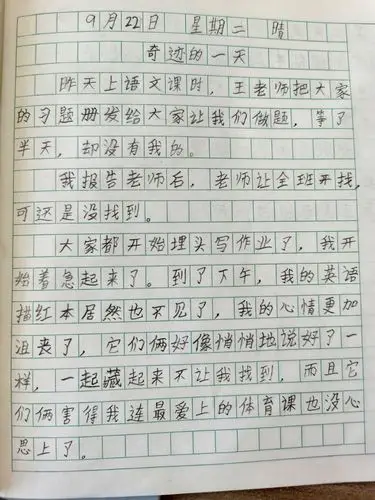 9月22日 星期二 晴
奇迹的一天
昨天上语文课时，王老师把大家
的习题册发给大家让我们做题，等了
半天，却没有我的。
我报告老师后，老师让全班开找，
可还是没找到。
大家都开始埋头写作业了，我开
始着急起来了。到了下午，我的英语
描红本居然也不见了，我的心情更加
沮丧了，它们俩好像悄悄地说好了一
样，一起藏起来不让我找到，而且它
们俩害得我连最爱上的体育课也没心
思上了。